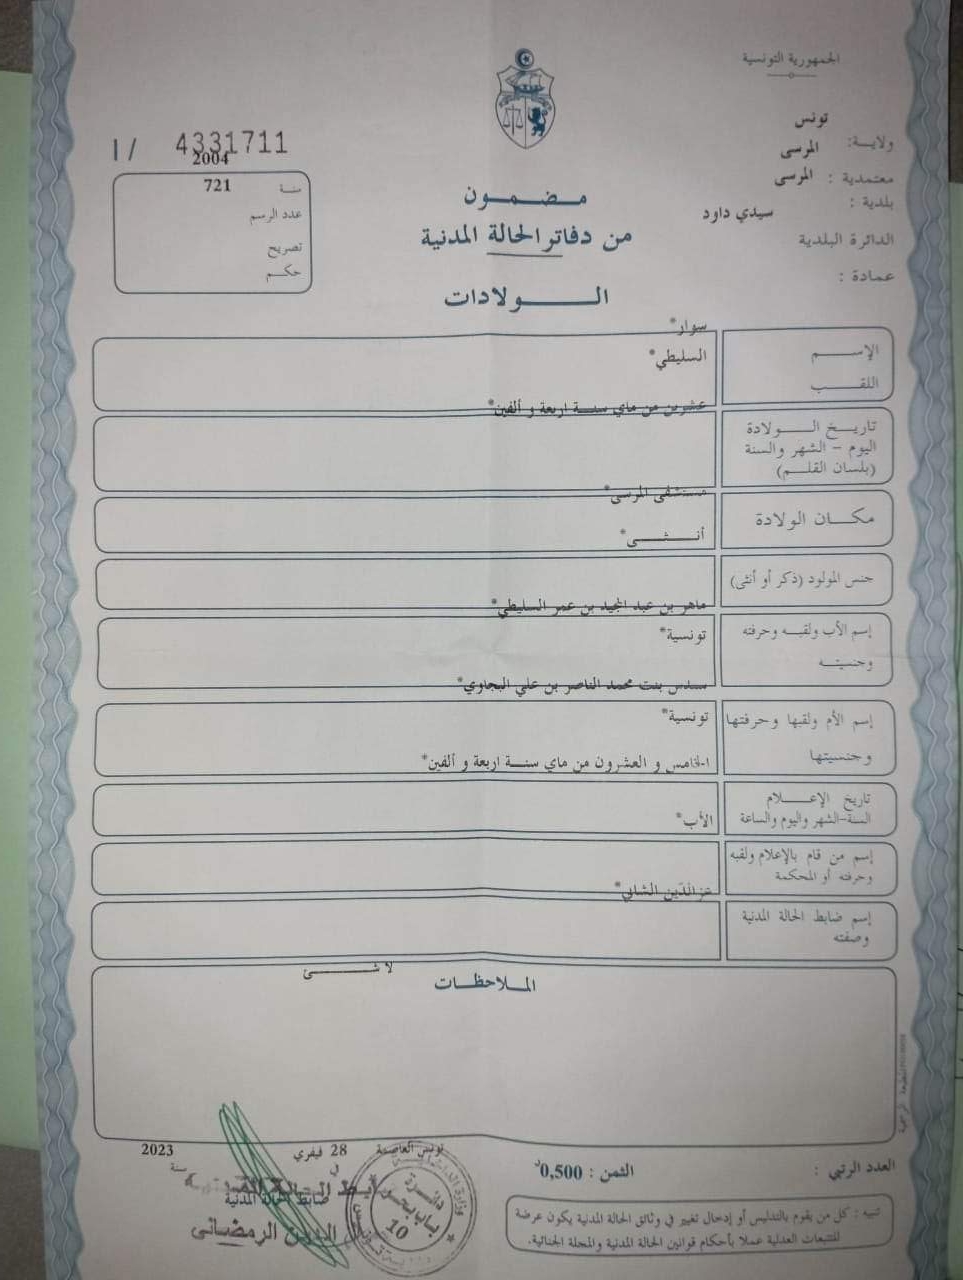 الجمهورية التونسية
ولاية: تونس
معتمدية : المرسى
بلدية : المرسى
الدائرة البلدية سيدي داود
عمادة :
I / 4331711
2004
سنة 721
عدد الرسم
تصريح
حكم
مضمون
من دفاتر الحالة المدنية
الولادات
سوار*
الإسم
السليطي*
اللقب
عشرين من ماي سنة اربعة و ألفين*
تاريخ الولادة
اليوم – الشهر والسنة
(بلسان القلم)
مستشفى المرسى*
مكان الولادة
أنثى*
جنس المولود (ذكر أو أنثى)
ماهر بن عبد المجيد بن عمر السليطي*
إسم الأب ولقبه وحرفته
تونسية*
وجنسيته
سندس بنت محمد الناصر بن علي البجاوي*
إسم الأم ولقبها وحرفتها
تونسية*
وجنسيتها
الخامس و العشرون من ماي سنة اربعة و ألفين*
تاريخ الإعلام
السنة–الشهر واليوم والساعة
الأب*
إسم من قام بالإعلام ولقبه
وحرفته أو المحكمة
عزالدين الشابي*
إسم ضابط الحالة المدنية
وصفته
لا شئ
الملاحظات
تونس العاصمة في 28 فيفري سنة 2023
ضابط الحالة المدنية
الرمضاني
دائرة
باب بحر
10
العدد الرتبي :
الثمن : 0,500د
تنبيه : كل من يقوم بالتدليس أو إدخال تغيير في وثائق الحالة المدنية يكون عرضة
للتتبعات العدلية عملا بأحكام قوانين الحالة المدنية والمجلة الجنائية.